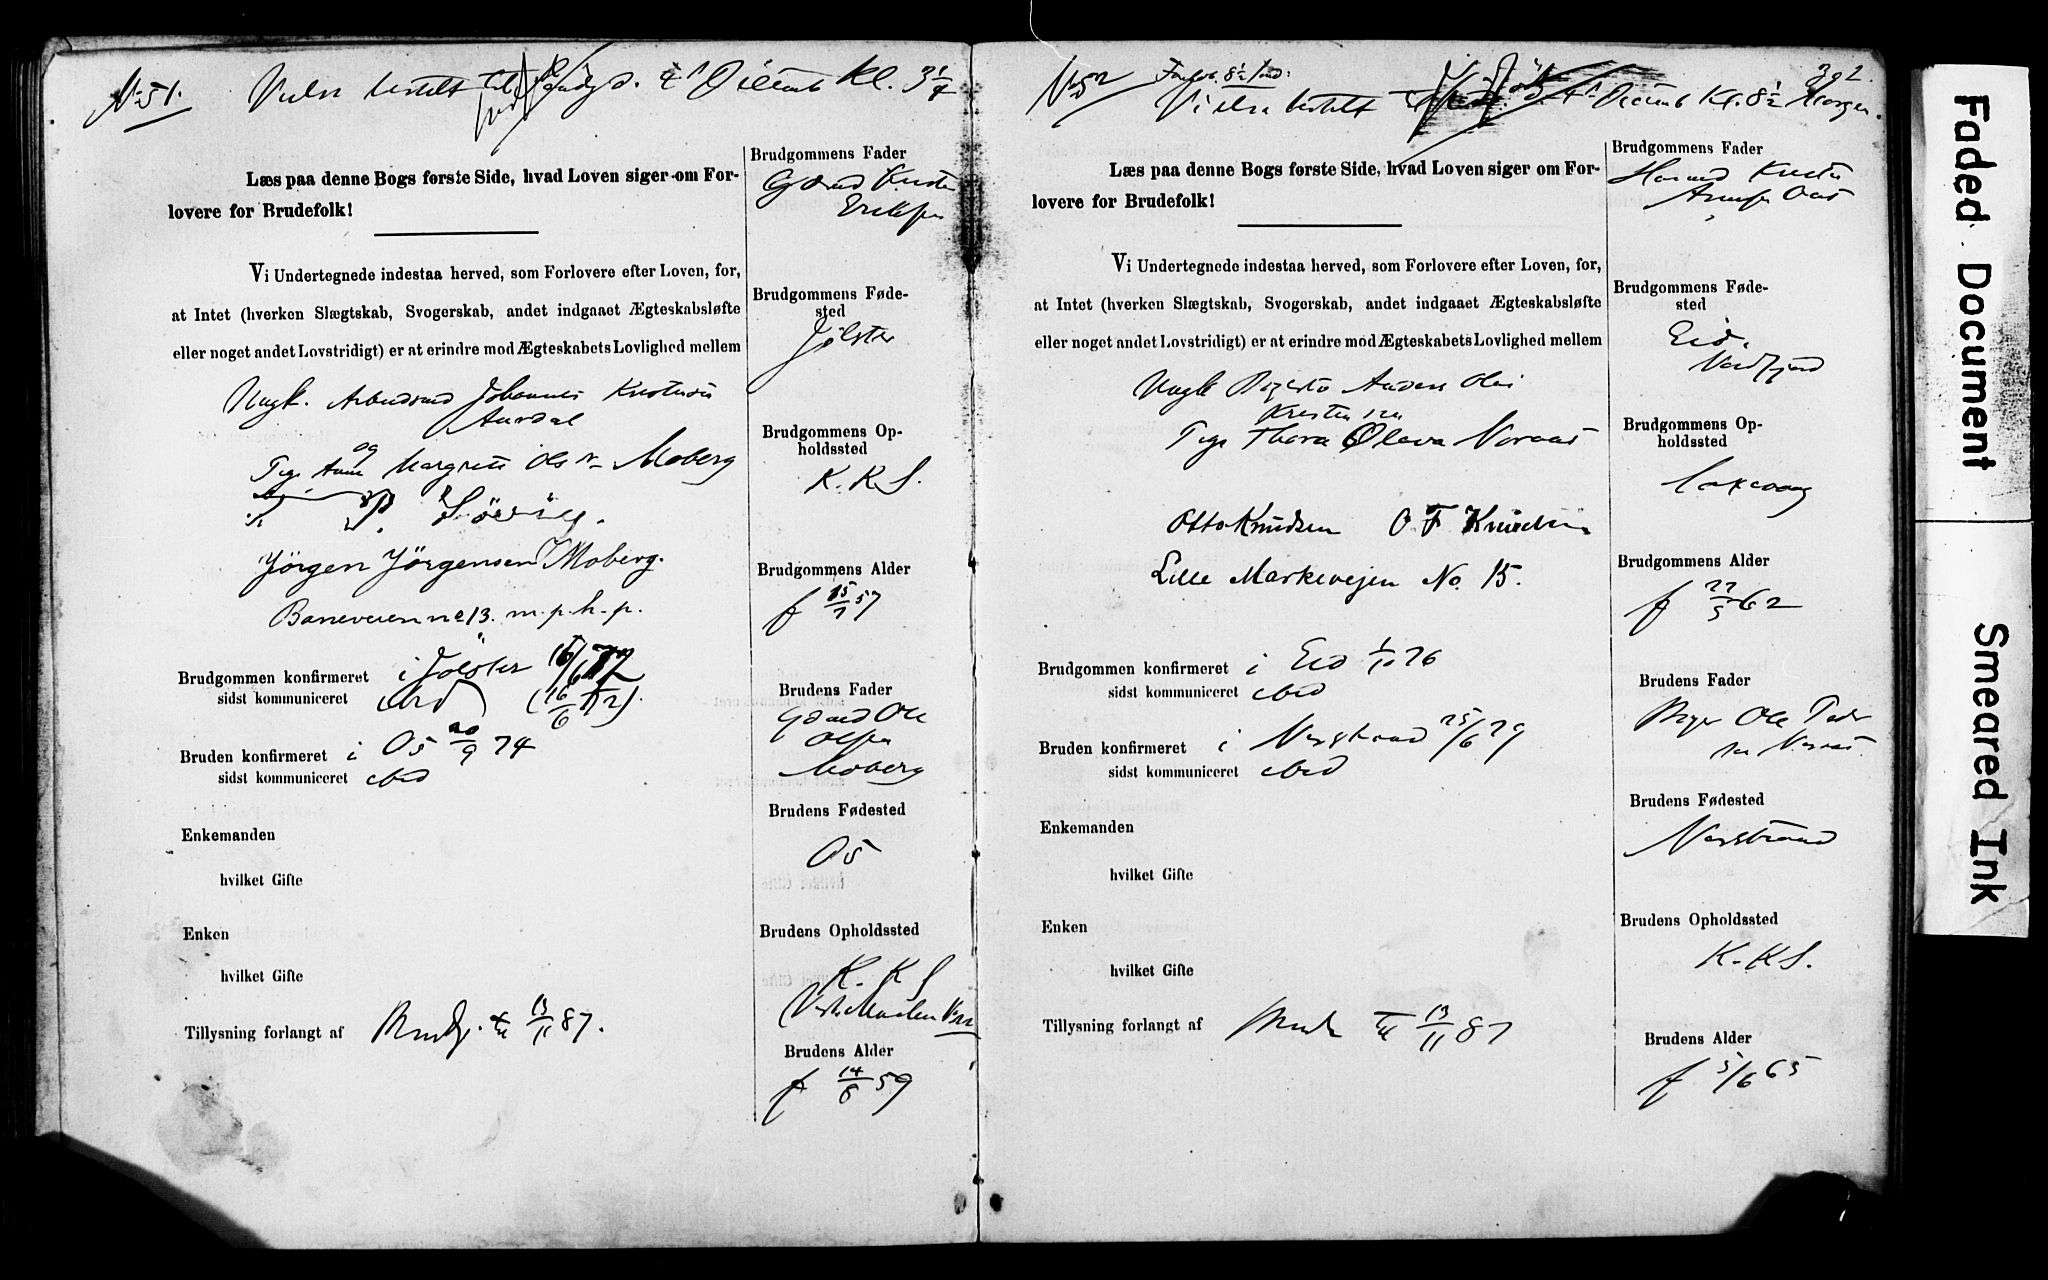 No 51. Vielse bestilt til Søndag d. 4' Decemb Kl. 3 1/4
Læs paa denne Bogs første Side, hvad Loven siger om For-
lovere for Brudefolk!
Vi Undertegnede indestaa herved, som Forlovere efter Loven, for,
at Intet (hverken Slægtskab, Svogerskab, andet indgaaet Ægteskabsløfte
eller noget andet Lovstridigt) er at erindre mod Ægteskabets Lovlighed mellem
Ungk. Arbeidsmd Johannes
Aardal
og
Pige Anna Margrete Olsdr Moberg
Jörgen Jörgensen Moberg.
Baneveien no 13. m. p. h. p.
Brudgommen konfirmeret i Jölster
sidst kommuniceret ibid (16/6 72).
Bruden konfirmeret i Os 20/9 74
sidst kommuniceret ibid
Enkemanden
hvilket Gifte
Enken
hvilket Gifte
Tillysning forlangt af Brudg. til 13/11 87.
Brudgommens Fader
Gbmd
Eriksen
Brudgommens Føde-
sted
Jölster
Brudgommens Op-
holdssted
K. K. S.
Brudgommens Alder
f 15/7 57
Brudens Fader
Gbmd Ole
Olsen
Moberg
Brudens Fødested
Os
Brudens Opholdssted
K. K. S
Brudens Alder
f 14/8 59
302.
No 52 Vielse bestilt d. 4' Decemb Kl. 8 1/2 Morgen.
Læs paa denne Bogs første Side, hvad Loven siger om For-
lovere for Brudefolk!
Vi Undertegnede indestaa herved, som Forlovere efter Loven, for,
at Intet (hverken Slægtskab, Svogerskab, andet indgaaet Ægteskabsløfte
eller noget andet Lovstridigt) er at erindre mod Ægteskabets Lovlighed mellem
Ungk Anders Olai
Kristensen
Pige Thora Olava
Otto Knudsen O F Knudsen
Lille Markevejen No. 15.
Brudgommen konfirmeret i Eid 1/10 76
sidst kommuniceret ibid
Bruden konfirmeret i Nerstrand 25/6 79
sidst kommuniceret ibid
Enkemanden
hvilket Gifte
Enken
hvilket Gifte
Tillysning forlangt af til 13/11 87
Brudgommens Fader
Husmd
Brudgommens Føde-
sted
Eid,
Nordfjord
Brudgommens Op-
holdssted
Laxevaag
Brudgommens Alder
f 22/5 62
Brudens Fader
Ole Peder
Brudens Fødested
Nerstrand
Brudens Opholdssted
K. K. S.
Brudens Alder
f 5/6 65
Faded Document
Smeared Ink